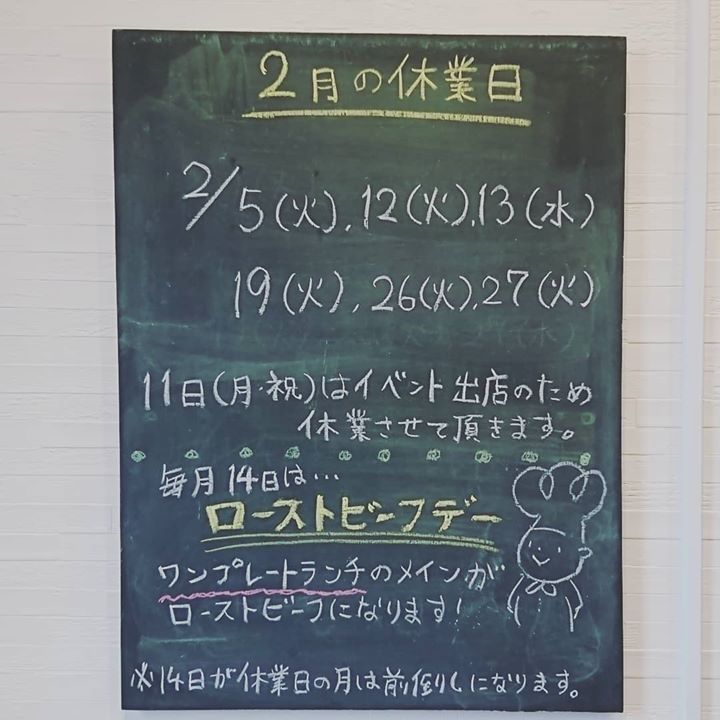 2月の休業日
2/5(火), 12(火), 13(水)
19(火), 26(火), 27(火)
11日(月・祝)はイベント出店のため
休業させて頂きます。
毎月14日は…
ローストビーフデー
ワンプレートランチのメインが
ローストビーフになります!
※14日が休業日の月は前倒しになります。